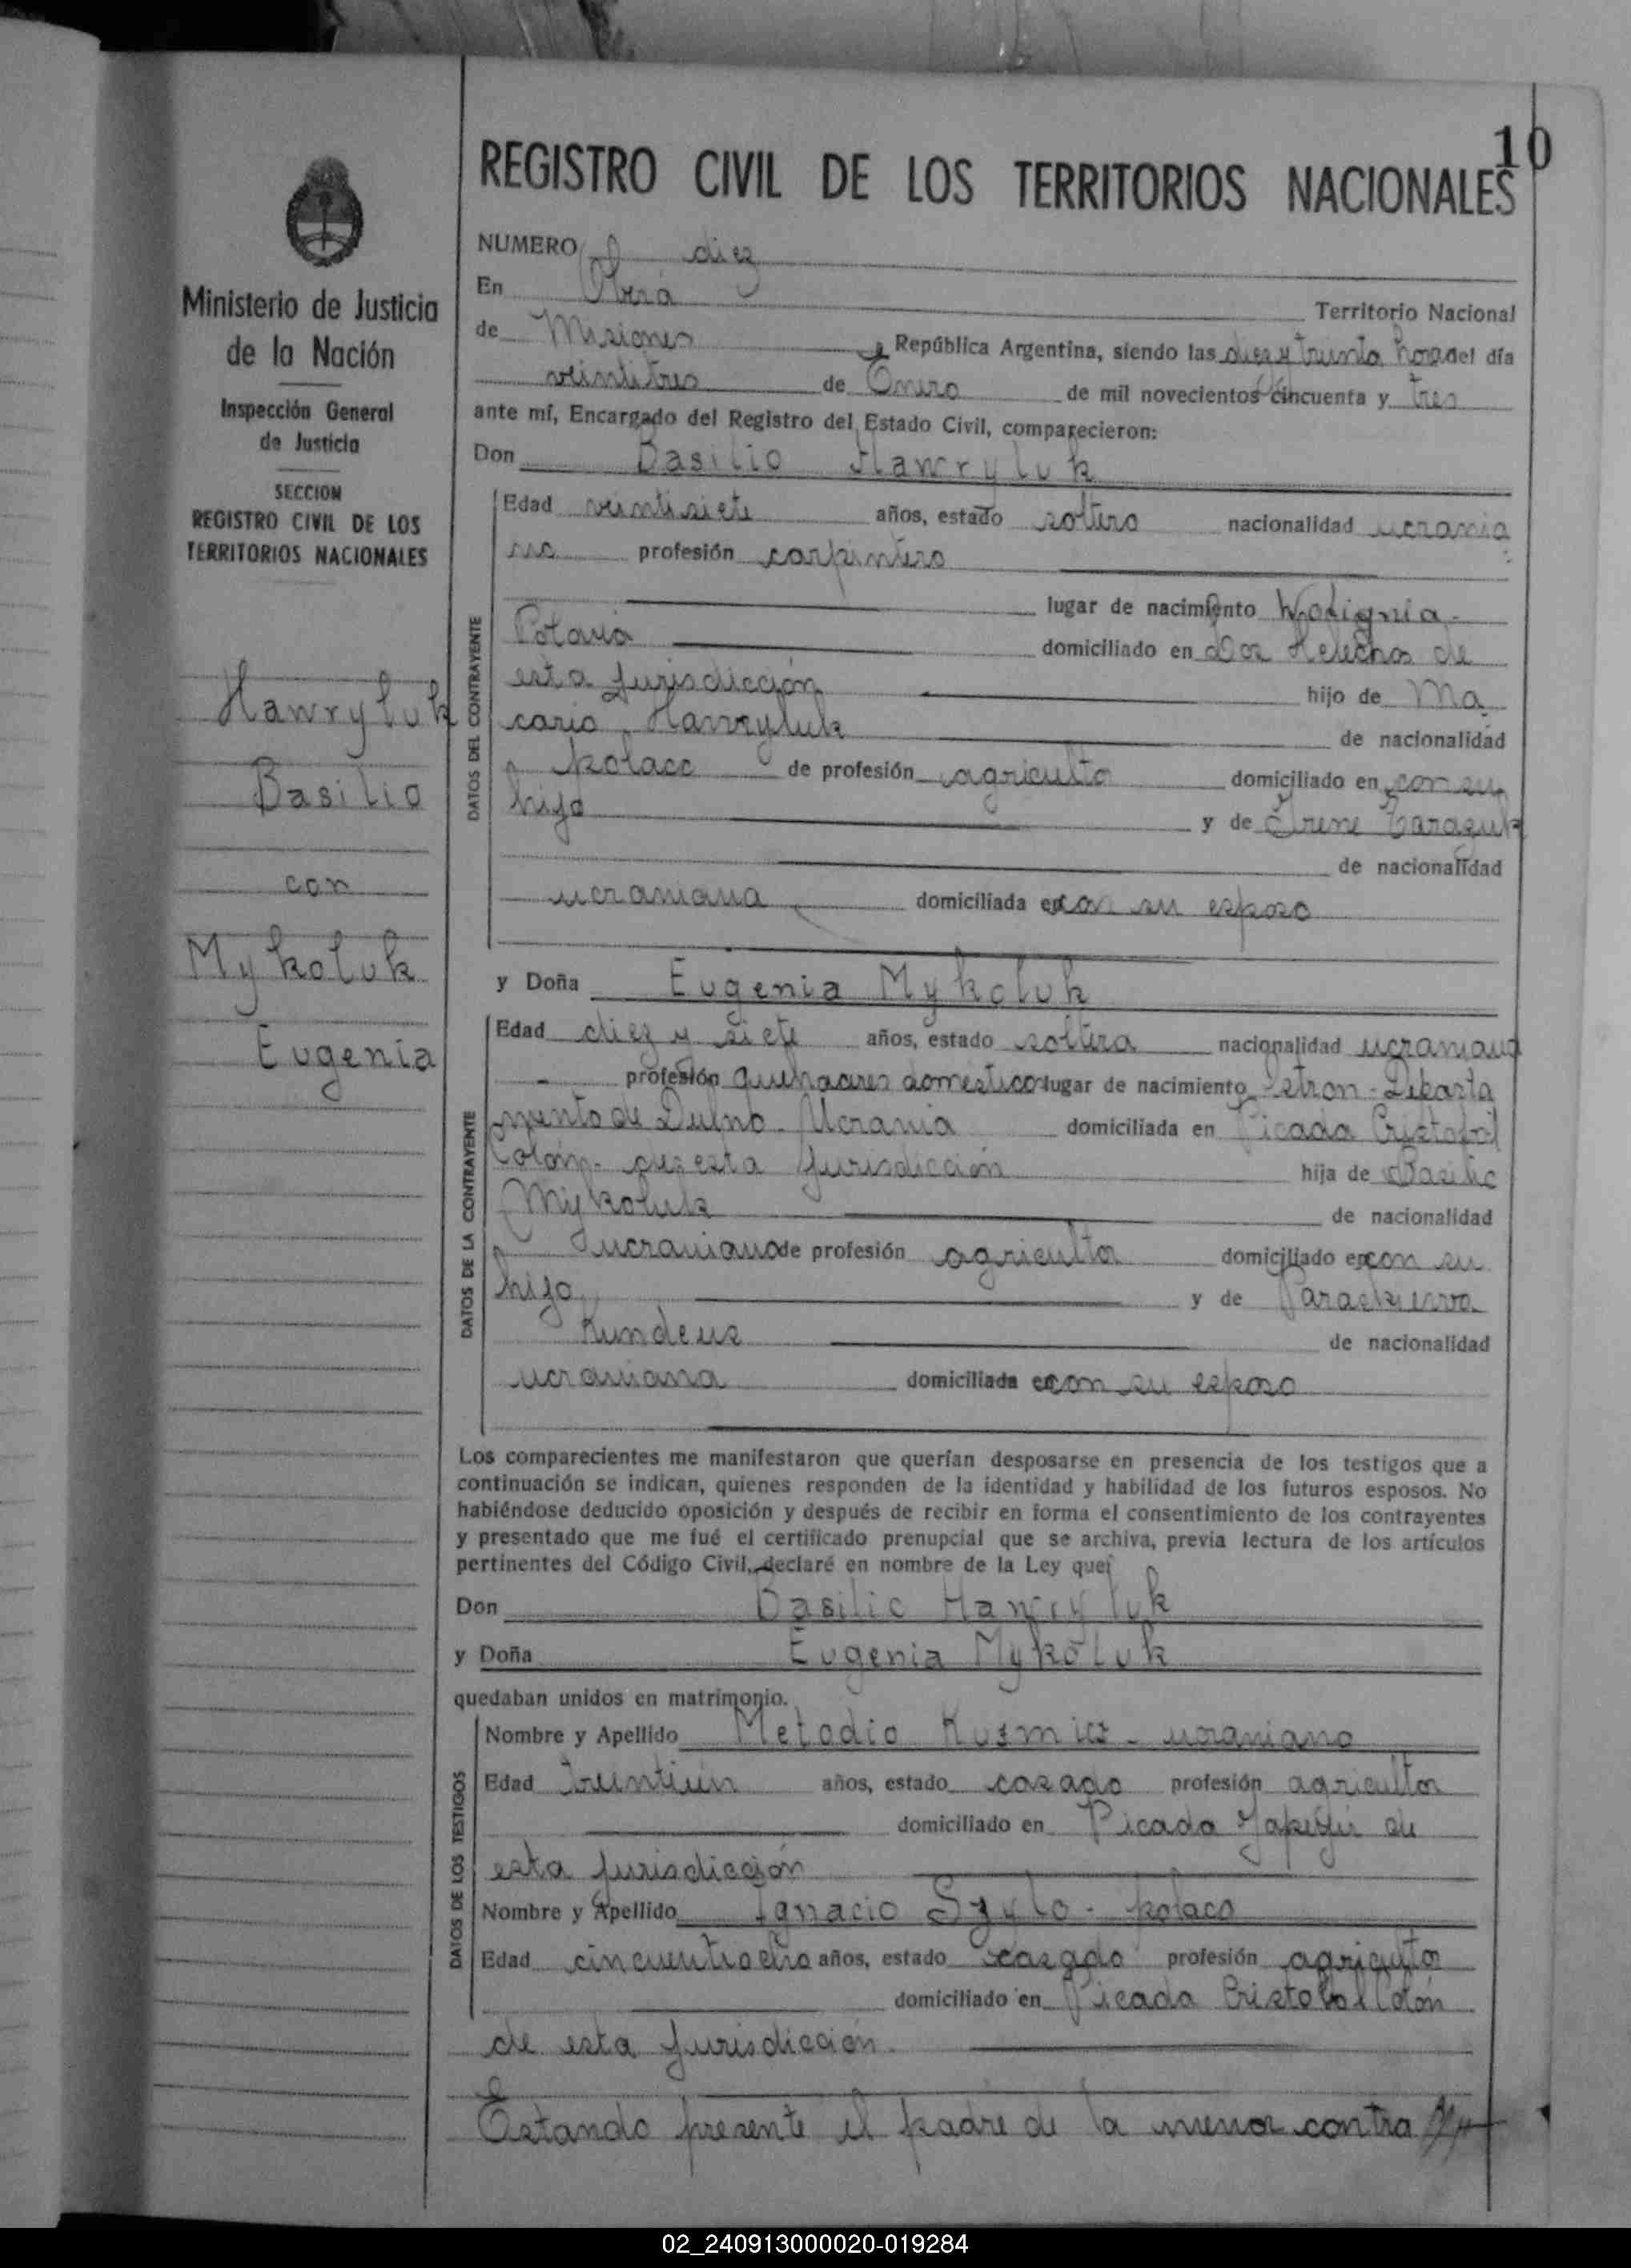 10
REGISTRO CIVIL DE LOS TERRITORIOS NACIONALES
Ministerio de Justicia
de la Nación
Inspección General
de Justicia
SECCION
REGISTRO CIVIL DE LOS
TERRITORIOS NACIONALES
Hawryluk
Basilio
con
Mykoluk
Eugenia
NUMERO diez
En Oberá Territorio Nacional
de Misiones República Argentina, siendo las diez y treinta horas del día
veintitres de Enero de mil novecientos cincuenta y tres
ante mí, Encargado del Registro del Estado Civil, comparecieron:
Don Basilio Hawryluk
DATOS DEL CONTRAYENTE
Edad veintisiete años, estado soltero nacionalidad ucrania
no profesión carpintero
lugar de nacimiento Wolignia -
Polonia domiciliado en Dos Helechos de
esta jurisdicción hijo de Ma
cario Hawryluk de nacionalidad
polaco de profesión agricultor domiciliado en con su
hijo y de Irene Tarazuk
de nacionalidad
ucraniana domiciliada en con su esposo
y Doña Eugenia Mykoluk
DATOS DE LA CONTRAYENTE
Edad diez y siete años, estado soltera nacionalidad ucraniana
- profesión quehaceres domesticos lugar de nacimiento Departa
mento de Dubno - Ucrania domiciliada en Picada Cristobal
Colón - de esta jurisdicción hija de Basilio
Mykoluk de nacionalidad
ucraniano de profesión agricultor domiciliado en con su
hija y de Paraskiewa
Kundeus de nacionalidad
ucraniana domiciliada en con su esposo
Los comparecientes me manifestaron que querían desposarse en presencia de los testigos que a
continuación se indican, quienes responden de la identidad y habilidad de los futuros esposos. No
habiéndose deducido oposición y después de recibir en forma el consentimiento de los contrayentes
y presentado que me fué el certificado prenupcial que se archiva, previa lectura de los artículos
pertinentes del Código Civil, declaré en nombre de la Ley que:
Don Basilio Hawryluk
y Doña Eugenia Mykoluk
quedaban unidos en matrimonio.
DATOS DE LOS TESTIGOS
Nombre y Apellido Metodio Kuzmicz - ucraniano
Edad treintiún años, estado casado profesión agricultor
domiciliado en Picada Yapeyú de
esta jurisdicción
Nombre y Apellido Ignacio Szylo - polaco
Edad cincuentiocho años, estado casado profesión agricultor
domiciliado en Picada Cristobal Colón
de esta jurisdicción.
Estando presente el padre de la menor contra
02_240913000020-019284